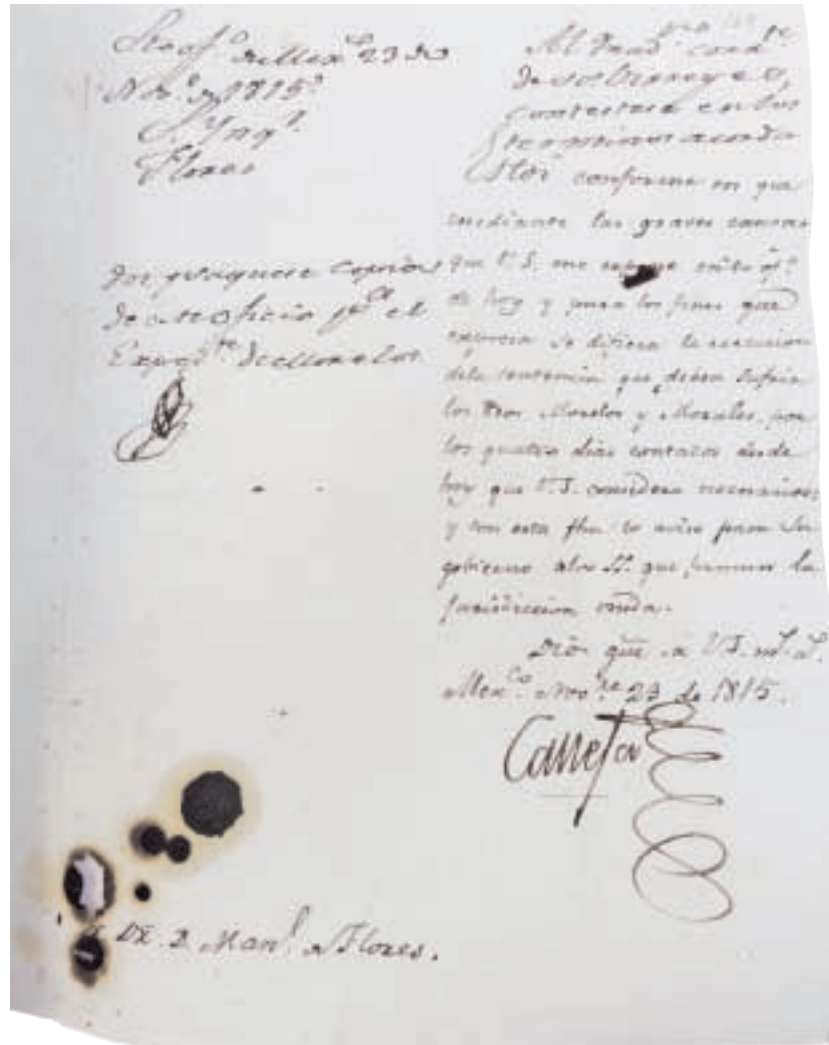 Sto of.º de Mex.co 23 de
Nov.e de 1815.
S. Ynq.r
Flores
Saquese copia
de este oficio p.a el
Exped.te de Morelos
DR. D. Man.l de Flores.
contestese en los
terminos acorda
Estoi conforme en que
mediante las graves causas
que V.S. me expone en su of.º
de hoy y para los fines que
expresa se difiera la execucion
dela sentencia que deben sufrir
los Reos Morelos y Morales por
los quatro dias contados desde
hoy que V.S. considera necesarios
y con esta fha lo aviso para su
gobierno alos SS. que forman la
jurisdiccion unida.
Dios gue a V.S. m.s a.s
Mex.co Nov.re 23 de 1815.
Calleja